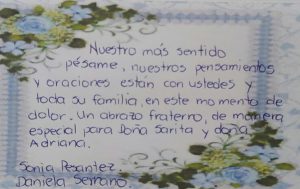 Nuestro más sentido
pésame, nuestros pensamientos
y oraciones están con ustedes y
toda su familia, en este momento de
dolor. Un abrazo fraterno, de manera
especial para Doña Sarita y doña
Adriana.
Sonia Pesantez
Daniela Serrano.